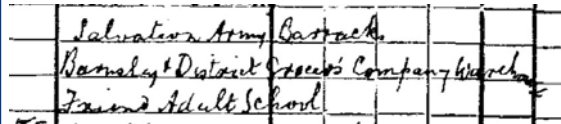 Salvation Army Barracks
Barnsley & District Grocers Company Wareho
Friend Adult School